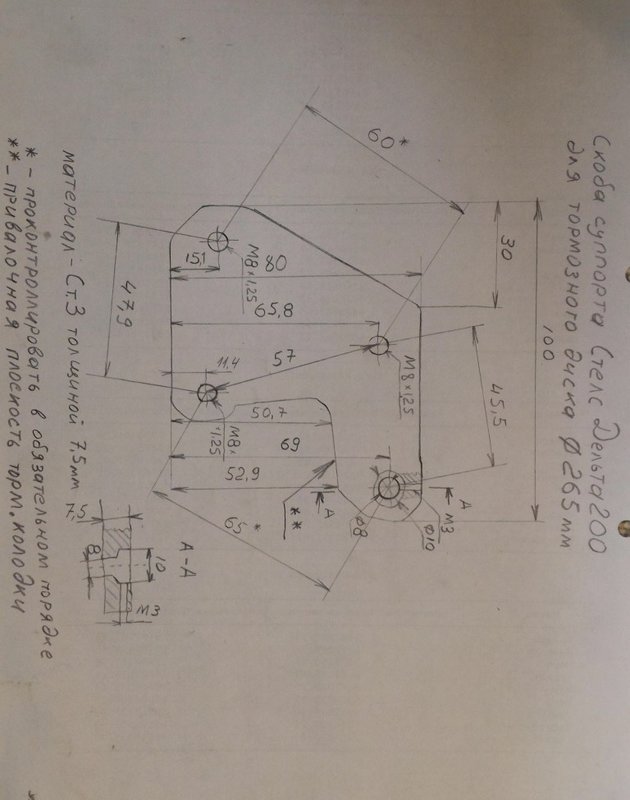 Скоба суппорта Стелс Дельта 200
для тормозного диска Ø 265 мм
60*
30
100
15,1
М8×1,25
80
65,8
57
11,4
47,9
М8×1,25
45,5
М8×
1,25
50,7
69
52,9
65*
**
А
А
М3
Ø8
Ø10
А-А
7,5
8
10
М3
материал - Ст.3 толщиной 7,5мм
* - проконтроллировать в обязательном порядке
** - привалочная плоскость торм. колодки